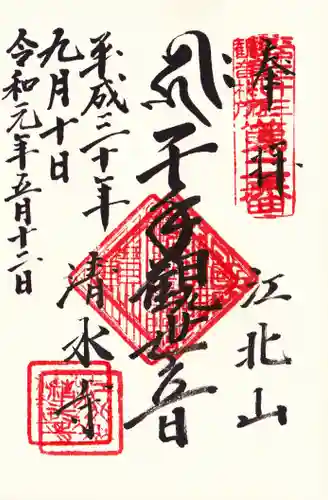 奉拝
江北山
千手観世音
清水寺
平成三十年
九月十日
令和元年五月十二日